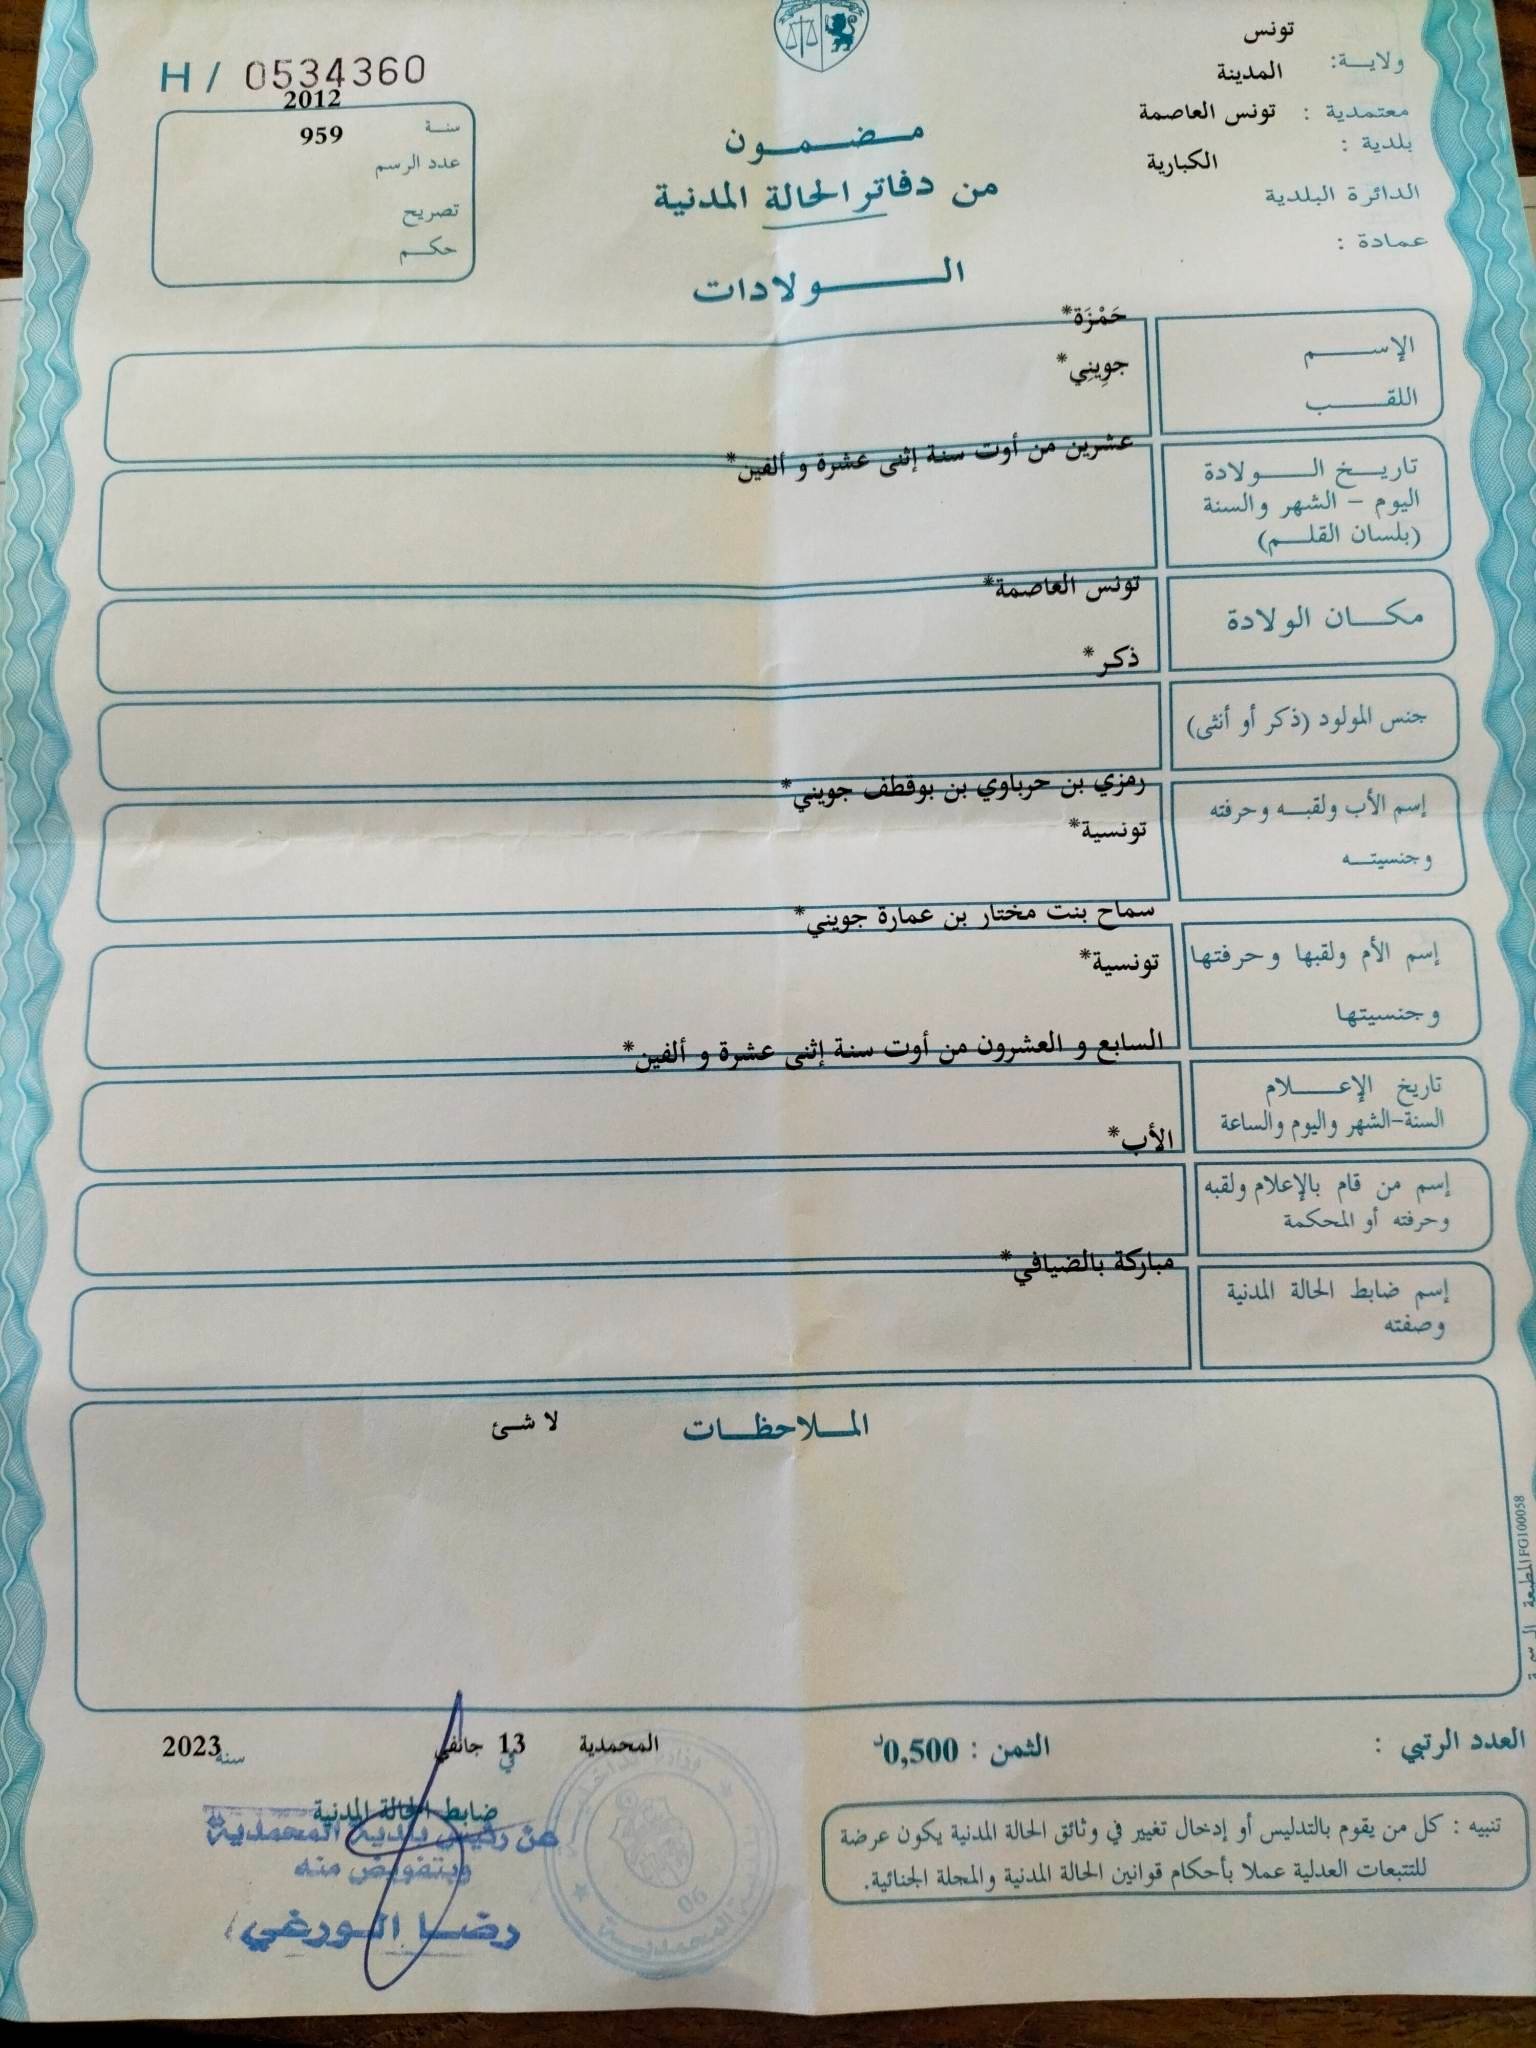 تونس
ولاية:
المدينة
معتمدية : تونس العاصمة
بلدية :
الكبارية
الدائرة البلدية
عمادة :
H / 0534360
2012
سنة
959
عدد الرسم
تصريح
حكم
مضمون
من دفاتر الحالة المدنية
الولادات
حَمْزَة*
الإسم
جوِيني*
اللقب
عشرين من أوت سنة إثنى عشرة و ألفين*
تاريخ الولادة
اليوم - الشهر والسنة
(بلسان القلم)
تونس العاصمة*
مكان الولادة
ذكر*
جنس المولود (ذكر أو أنثى)
رمزي بن حرباوي بن بوقطف جويني*
إسم الأب ولقبه وحرفته
تونسية*
وجنسيته
سماح بنت مختار بن عمارة جويني*
إسم الأم ولقبها وحرفتها
تونسية*
وجنسيتها
السابع و العشرون من أوت سنة إثنى عشرة و ألفين*
تاريخ الإعلام
السنة-الشهر واليوم والساعة
الأب*
إسم من قام بالإعلام ولقبه
وحرفته أو المحكمة
مباركة بالضيافي*
إسم ضابط الحالة المدنية
وصفته
الملاحظات
لا شئ
المطبعة الرسمية FG100058
العدد الرتبي :
الثمن : 0,500د
المحمدية في 13 جانفي سنة 2023
ضابط الحالة المدنية
عن رئيس بلدية المحمدية
وبتفويض منه
رضا الورغي
06
تنبيه : كل من يقوم بالتدليس أو إدخال تغيير في وثائق الحالة المدنية يكون عرضة
للتتبعات العدلية عملا بأحكام قوانين الحالة المدنية والمجلة الجنائية.